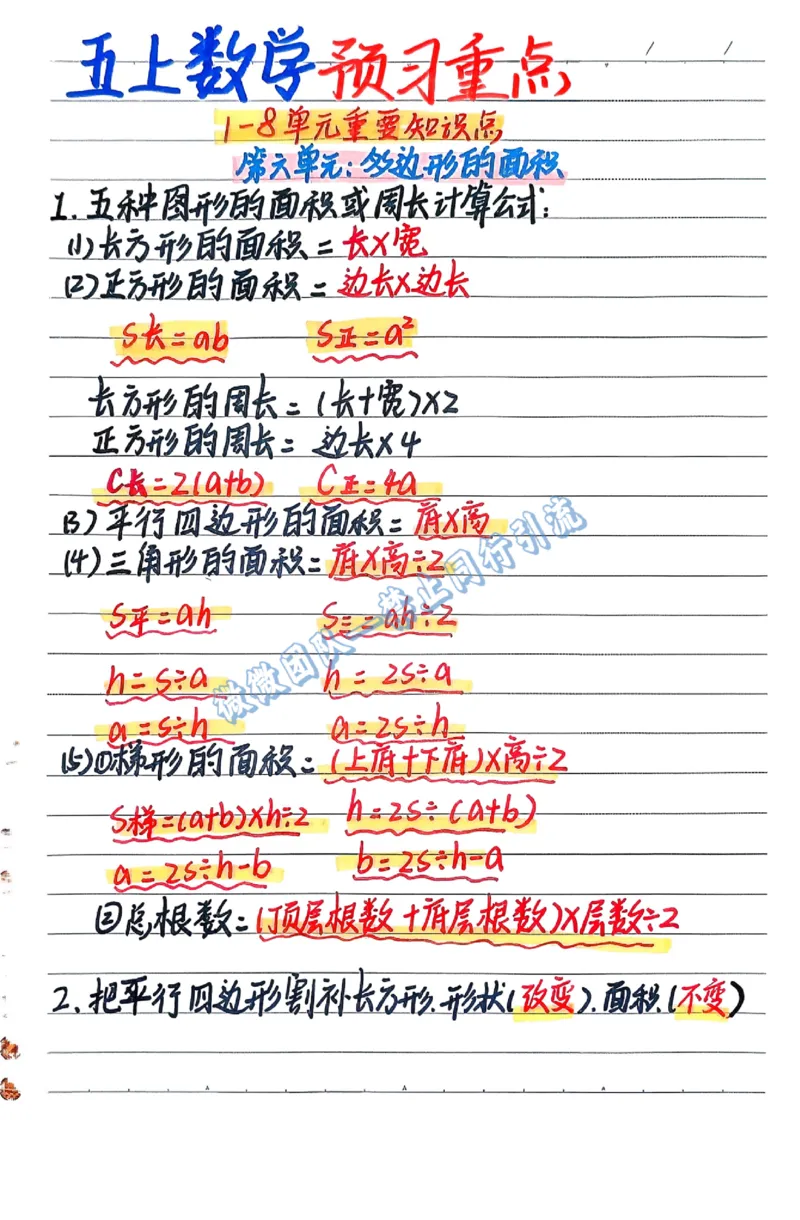 五上数学预习重点
1-8单元重要知识点
第六单元:多边形的面积
1.五种图形的面积或周长计算公式:
(1)长方形的面积=长×宽
(2)正方形的面积=边长×边长
S长=ab S正=a²
长方形的周长=(长+宽)×2
正方形的周长=边长×4
C长=2(a+b) C正=4a
(3)平行四边形的面积=底×高
(4)三角形的面积=底×高÷2
S平=ah S三=ah÷2
h=s÷a h=2s÷a
a=s÷h a=2s÷h
(5)①梯形的面积=(上底+下底)×高÷2
S梯=(a+b)×h÷2 h=2s÷(a+b)
a=2s÷h-b b=2s÷h-a
②总根数=(顶层根数+底层根数)×层数÷2
2.把平行四边形割补长方形.形状(改变).面积(不变)